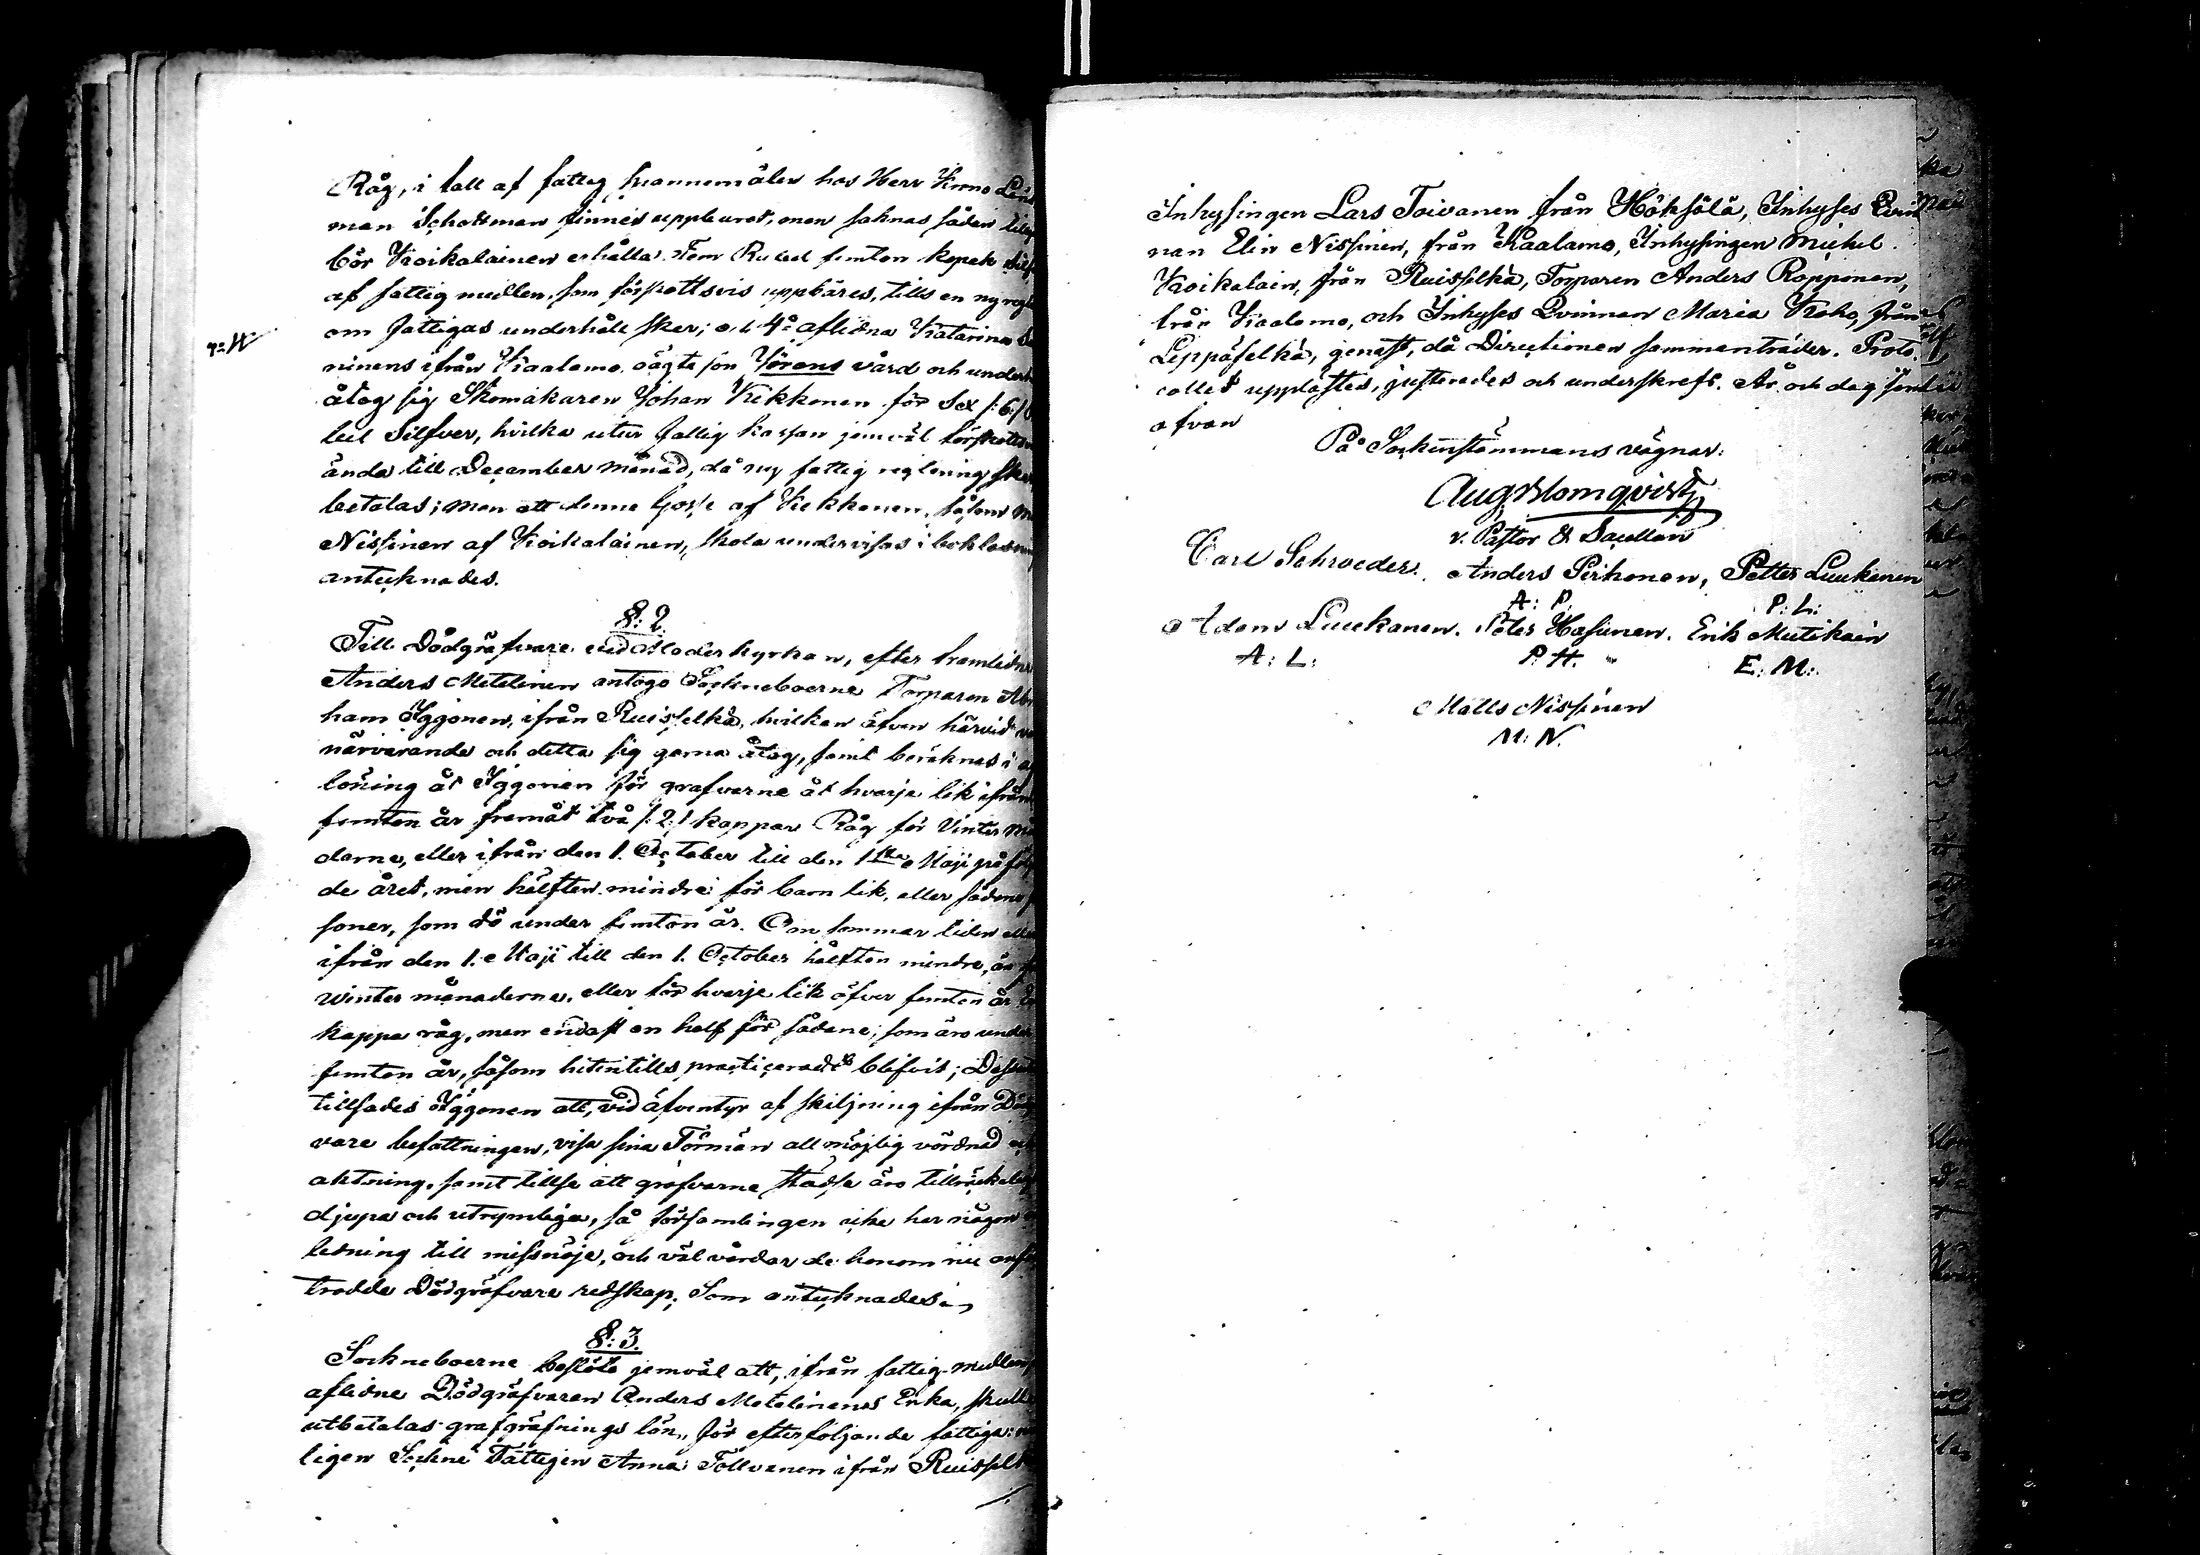 Råg, i fall af fattig spannemålen hos Herr Krono Läns
man Schotsman finnes uppburet, men saknas sådan
bör Koikalainen erhålla Fem Rubel femton kopek Silf
af fattig medlen, som förskottsvis uppbäres, tills en ny
om fattigas underhåll sker; o. 4o aflidna Katarina
ninens ifrån Kaalamo oägta son Jörans vård och under
åtog sig Skomakaren Johan Kekkonen för Sex /: 6 :/
bel Silfver, hvilka utur fattig kassan jemväl
ända till December månad, då ny fattig reglering sker
betalas; men att denne Gosse af Kekkonen, såsom
Nissinen af Koikalainen, skola undervisas i
antecknades.
§: 2.
Till Dödgräfvare vid Moderkyrkan, efter framlidne
Anders Metelinen antogo Sockneboerne Torparen Abra
ham Iggonen, ifrån Ruisselkä, hvilken äfven härvid
närvarande och detta sig gerna åtog, samt beräknas i
löning åt Iggonen för grafvarne åt hvarje lik ifrån
femton år framåt två /: 2 :/ kappar Råg för Vinter må
darne, eller ifrån den 1. October till den 1sta Maji påföl
de året, men hälften mindre för barn lik, eller sådane
soner, som dö under femton år. Om sommar tiden
ifrån den 1. Maji till den 1. October hälften mindre, än
Winter månaderna, eller för hvarje lik öfver femton år
kappa råg, men endast en half för sådane, som äro under
femton år, såsom hitintills practiceradt blifvit;
tillsades Iggonen att, vid äfventyr af skiljning ifrån
vare befattningen, visa sina Förmän all möjlig vördnad
aktning, samt tillse att grafvarne städse äro
djupa och utrymliga, så församlingen icke har någon
ledning till missnöje, och väl vårdar de honom nu
trodde Dödgräfvare redskap; Som antecknades.
§: 3.
Socknboerne beslöto jemväl att, ifrån fattig-medlen
aflidne Dödgräfvaren Anders Metelinens Enka, skulle
utbetalas grafgräfnings lön, för efterföljande fattiga:
ligen Sockne Fattigen Anna Tollvanen ifrån Ruisselkä
4o
Inhysingen Lars Toivanen från Höksälä, Inhyses Qvin
nan Elin Nissinen, från Kaalamo, Inhysingen Michel
Koikalain, från Ruisselkä, Torparen Anders Ropponen,
från Kaalamo, och Inhyses Qvinnan Maria Koho, från
Leppäselkä, genast, då Directionen sammanträder. Proto-
collet upplästes, justerades och underskrefs. År och dag som
ofvan
På Sockenstämmans vägnar:
Aug Blomqvist
v. Pastor & Sacellan
Carl Schroeder. Anders Pirhonen, Petter Luukanen
A: P. P: L:
Adam Luukanen. Peter Hasunen. Erik Mutikain
A: L: P: H. E: M:
Matts Nissinen
M: N.